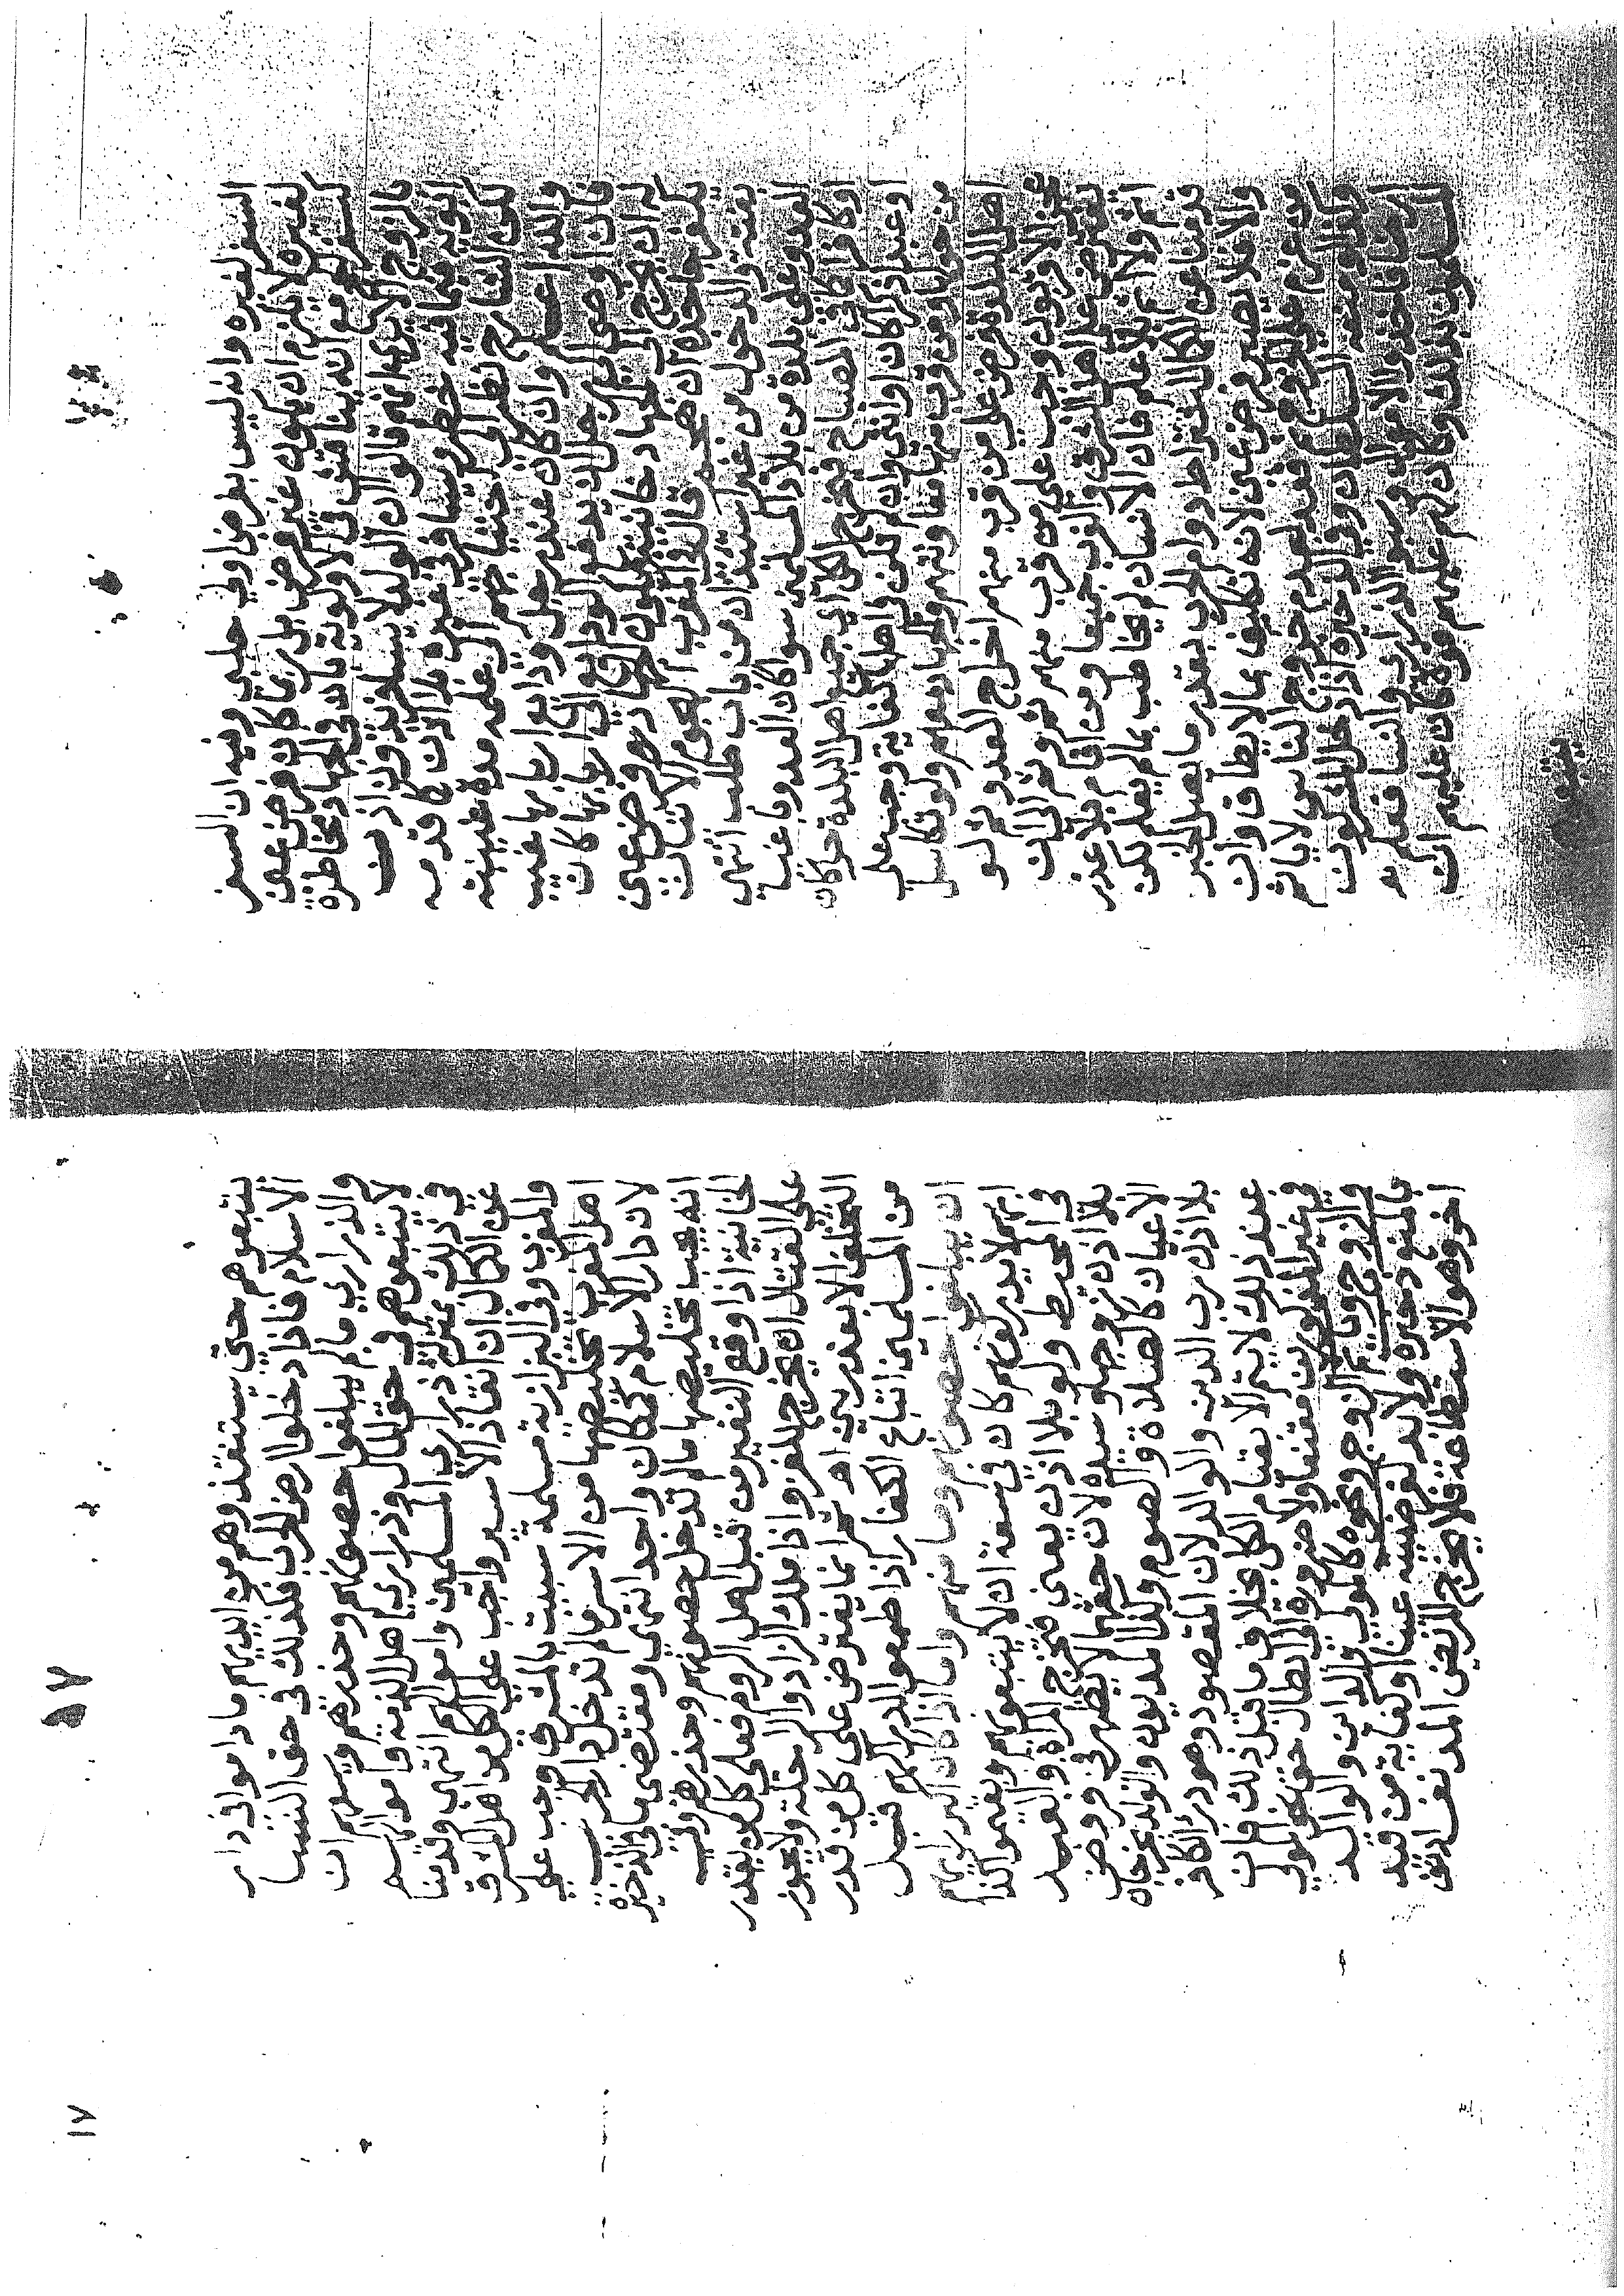 السفر لغيره وانه ليس بفرض اوفي حلبي وفيه ان السفر
لغيره لا يلزم ان يكون غير فرض بل ربما كان فرض عين
كسفر الحج مع انه يناقش في الاولوية بان في الجهاد مخاطرة
بالروح الا يرى انهم قالوا ان الولد لا يسافر بدون اذن
ابويه فيما فيه خطر ويسافر في غيره بلا اذن كما قدمه
لكن الشارح نظر الى احتياجهم الى علمه مدة غيبته
والله اعلم وان كان عنده رجل ودايع اربابها غيب
فان اوصى الى رجل ان يدفع الودايع الى اربابها كان
له ان يخرج الى الجهاد خانية ويكون الجهاد فرض عين
يكفر جاحده ان هجموا قال في المغرب الهجوم الاتيان
بغتة والدخول من غير استئذان من باب طلب انتهى
العدو على بلدة من بلاد المسلمين سوا كان العدو باغيا
او كافرا المصباح فيخرج الكل اي جميع اهل البلدة حرا كان
او عبدا ذكرا كان او انثى وان لم يكن باهلها كفاية وجب على
من حولها ومن قرب ولو تكاسل
اهل البلد فرض على من قرب منهم اخراج العدو ثم لو
عجز الاقربون وجب على من قرب منهم ثم وثم الى ان
يفترض على اهل الشرق والغرب جميعا ومن اقام بلا عذر
اثم ولا بلا علم فان الانسان لم يخاطب بما لم يعلم لكن
قدمنا عن الكمال اشتراط دوام الحرب بقدر ما يصل الخبر
والا فلا يصير فرض عين لانه تكليف بما لا يطاق وان
من عزم على الخروج قعد لعدم خروج الناس لا ياثم
وكذا لو منعه السلطان وفي الذخيرة اذا دخل المشركون
ارضا فاخذوا الاموال وسبوا الذراري والنسا فعلم به
المسلمون بذلك وكان لهم عليهم قوة كان عليهم ان
يتبعوهم
١٧
١٧
يتبعوهم حتى يستنقذوهم من ايديهم ما داموا في دار
الاسلام فاذا دخلوا ارض الحرب فكذلك في حق النسا
والذراري ما لم يبلغوا حصونهم وحذرهم ويسعهم ان
لا يتبعوهم في حق المال وذراري اهل الذمة واموالهم
في ذلك بمنزلة ذراري المسلمين واموالهم انتهى وقدمنا
عن الكمال ان انقاذ الاسير واجب على الكل من اهل المشرق
والمغرب وفي البزازية مسلمة سبيت بالمشرق وجب على
اهل المغرب تخليصها من الاسر ما لم تدخل دار الحرب
لان دار الاسلام كمكان واحد انتهى ومقتضى ما في الذخيرة
انه يجب تخليصها ما لم تدخل حصونهم وحذرهم وفي
الخانية اذا وقع النفير من قبل اهل الروم فعلى كل من يقدر
على القتال ان يخرج للغزو اذا ملك الزاد والراحلة ولا يجوز
التخلف الا بعذر بين اه ثم انما يفترض على كل من قدر
من المسلمين اتباع الكفار اذا طمعوا ادراكهم قبل
ان يبلغوا حصونهم وما منهم واما اذا كان اكبر رايهم
انهم لا يدركونهم كان في سعة ان لا يتبعوهم ويقيموا كذا
في المحيط ولو بلا اذن يعني فتخرج المراة والعبد
بلا اذن زوجها وسيده لان حقهما لا يظهر في فروض
الاعيان كالصلاة والصوم وكذا المديون والولد يخرجان
بلا اذن رب الدين والوالد لان المقصود وهو الكافر
عند ذلك لا يتم الا بقيام الكل بخلاف ما قبل ذلك فان
في غير المذكورين مقنعا ولا ضرورة الى ابطال حق المولى
والزوج وياثم الزوج ونحوه كالمولى والداين والوالد
بالمنع ذخيره ولا بد لفرضيته عينا او كفاية من قيد
اخر وهو الاستطاعة فلا يخرج المريض المدنف